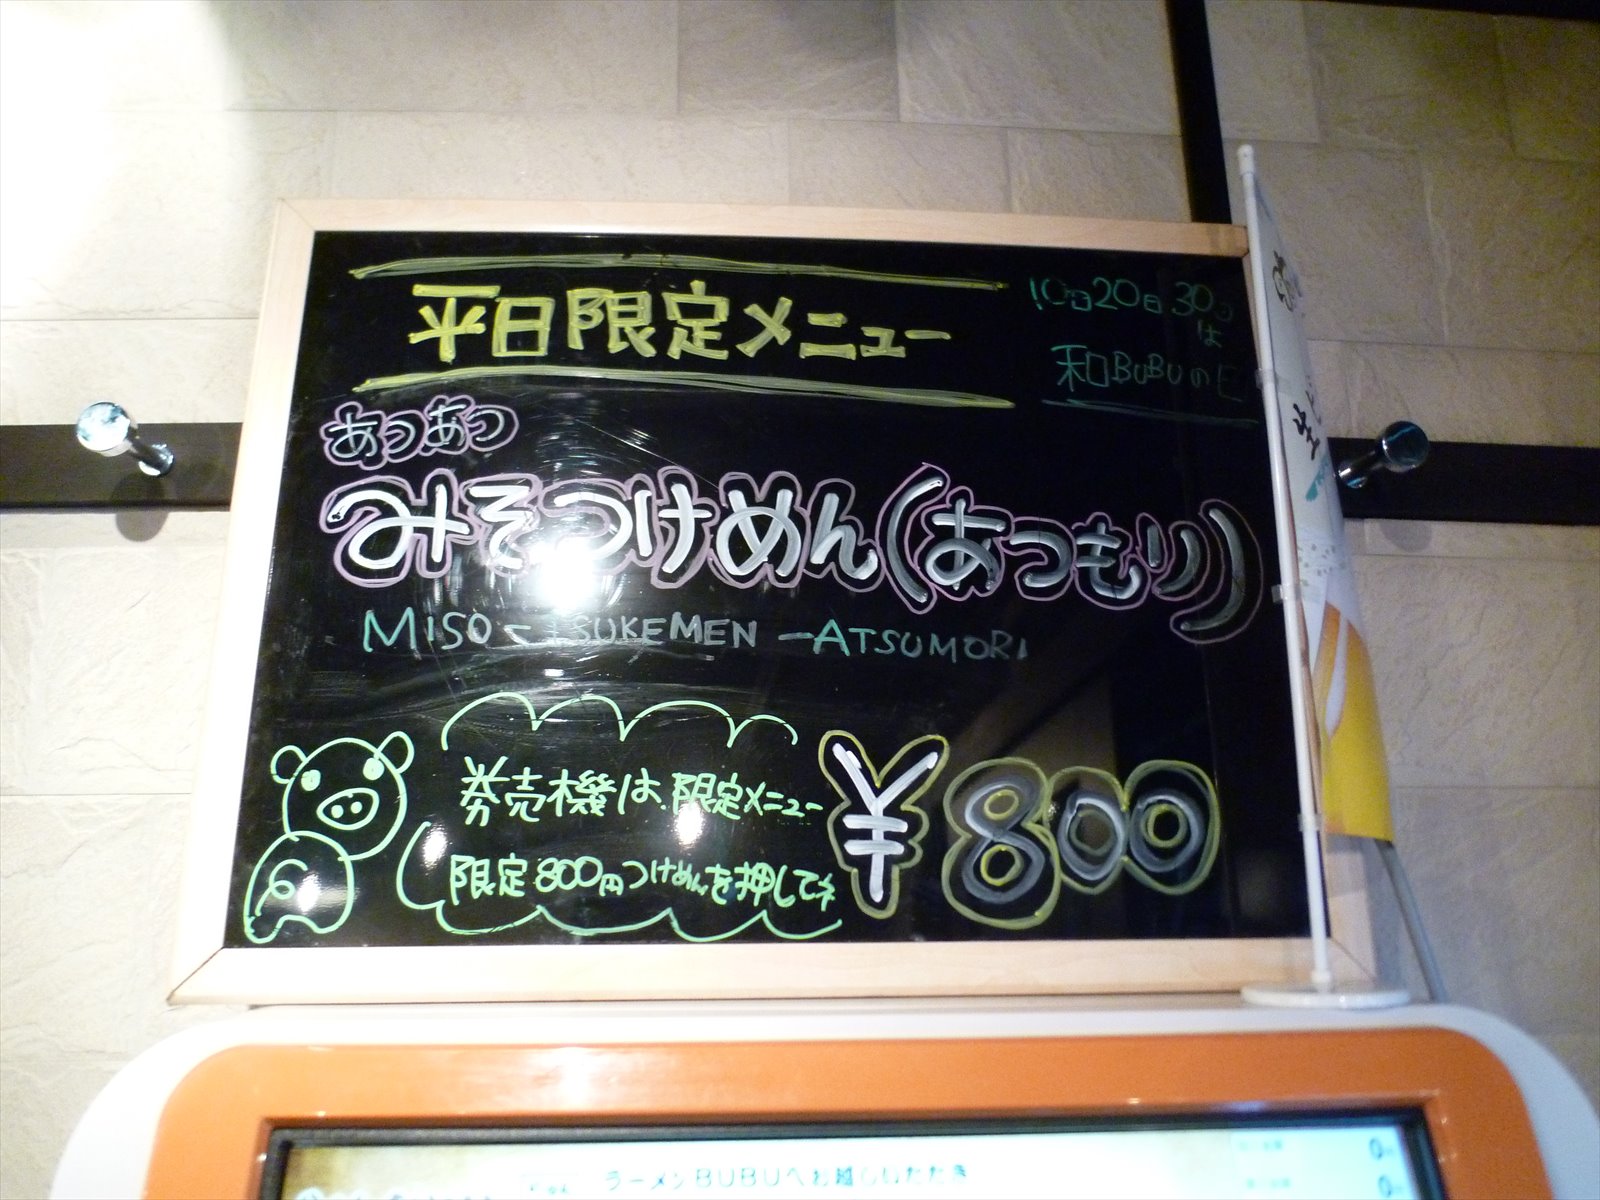 平日限定メニュー
10日20日30日
は
和BUBUの
あつあつ
みそつけめん(あつもり)
MISO-TSUKEMEN-ATSUMORI
券売機は限定メニュー
限定800円つけめんを押してネ
¥800
生
ラーメンBUBUへお越しいただき
0
0